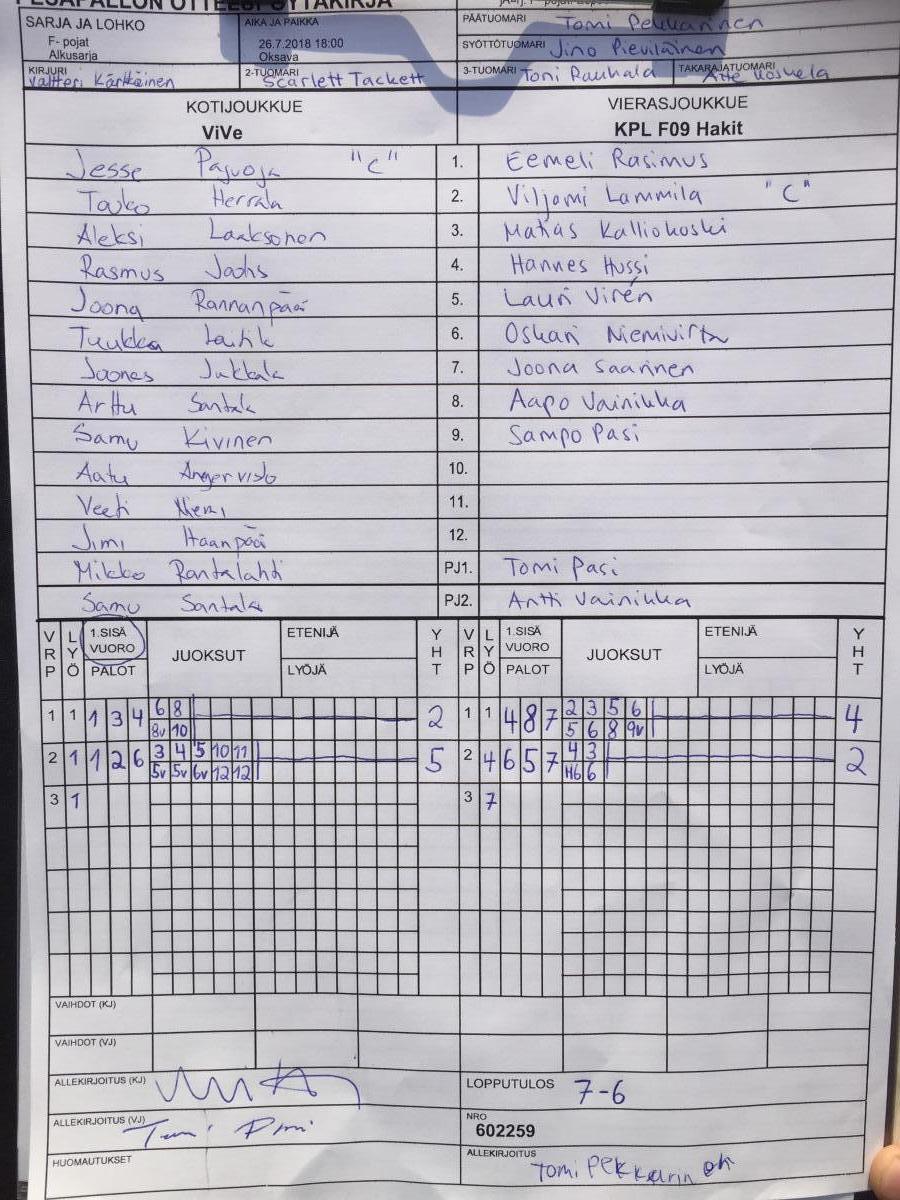 PESÄPALLON OTTELUPÖYTÄKIRJA
SARJA JA LOHKO
F- pojat
Alkusarja
AIKA JA PAIKKA
26.7.2018 18:00
Oksava
PÄÄTUOMARI Tomi Pekkarinen
SYÖTTÖTUOMARI Jino Pieviläinen
KIRJURI
Valtteri Kärkkäinen
2-TUOMARI
Scarlett Tackett
3-TUOMARI Toni Rauhala
TAKARAJATUOMARI
Atte Koskela
KOTIJOUKKUE VIERASJOUKKUE
ViVe KPL F09 Hakit
Jesse Pajuoja "C" 1. Eemeli Rasimus
Touko Herrala 2. Viljami Lammila "C"
Aleksi Laaksonen 3. Matias Kalliokoski
Rasmus 4. Hannes Hussi
Joona Rannanpää 5. Lauri Virén
Tuukka 6. Oskari Niemivirta
Joones Jukkala 7. Joona Saarinen
Arttu Santala 8. Aapo Vainikka
Samu Kivinen 9. Sampo Pasi
Aatu Angervisto 10.
Veeti Niemi 11.
Jimi Haanpää 12.
Mikko Rantalahti PJ1. Tomi Pasi
Samu Santala PJ2. Antti Vainikka
VRP LYÖ 1.SISÄ VUORO PALOT JUOKSUT ETENIJÄ LYÖJÄ YHT VRP LYÖ 1.SISÄ VUORO PALOT JUOKSUT ETENIJÄ LYÖJÄ YHT
1 1 1 3 4 6 8 2 1 1 4 8 7 2 3 5 6 4
8v 10 5 6 8 9v
2 1 1 2 6 3 4 5 10 11 5 2 4 6 5 7 4 3 2
5v 5v 6v 12 12 H6 6
3 1 3 7
VAIHDOT (KJ)
VAIHDOT (VJ)
ALLEKIRJOITUS (KJ)
LOPPUTULOS 7-6
ALLEKIRJOITUS (VJ)
NRO
602259
HUOMAUTUKSET
ALLEKIRJOITUS
Tomi Pekkarinen